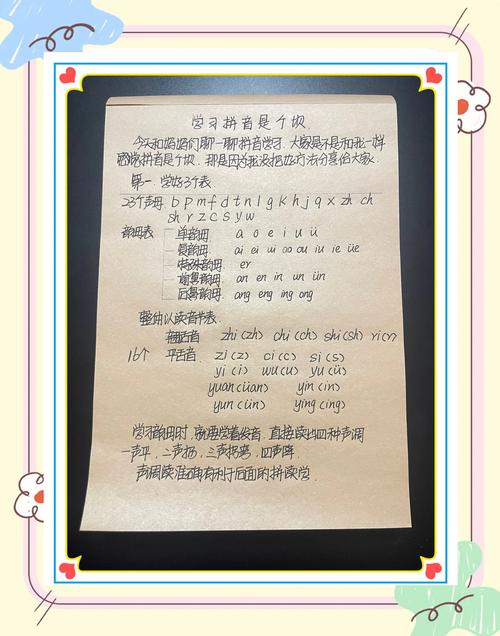 学习拼音是个坎.
今天和妈妈们聊一聊拼音学习. 大家是不是和我一样
感觉拼音是个坎. 那是因为我没把好方法分享给大家.
第一. 学好3个表.
23个声母. b p m f d t n l g k h j q x zh ch
sh r z c s y w
韵母表 单韵母 a o e i u ü
复韵母 ai ei ui ao ou iu ie üe
特殊韵母 er
前鼻韵母 an en in un ün
后鼻韵母 ang eng ing ong
整体认读音节表.
翘舌音 zhi (zh) chi (ch) shi (sh) ri (r)
16个 平舌音 zi (z) ci (c) si (s)
yi (i) wu (u) yu (ü)
yuan (üan) yin (in)
yun (ün) ying (ing)
学习韵母时, 发音. 直接读出四种声调
一声平, 二声扬, 三声拐弯, 四声降
声调读准确有利于后面的拼读学